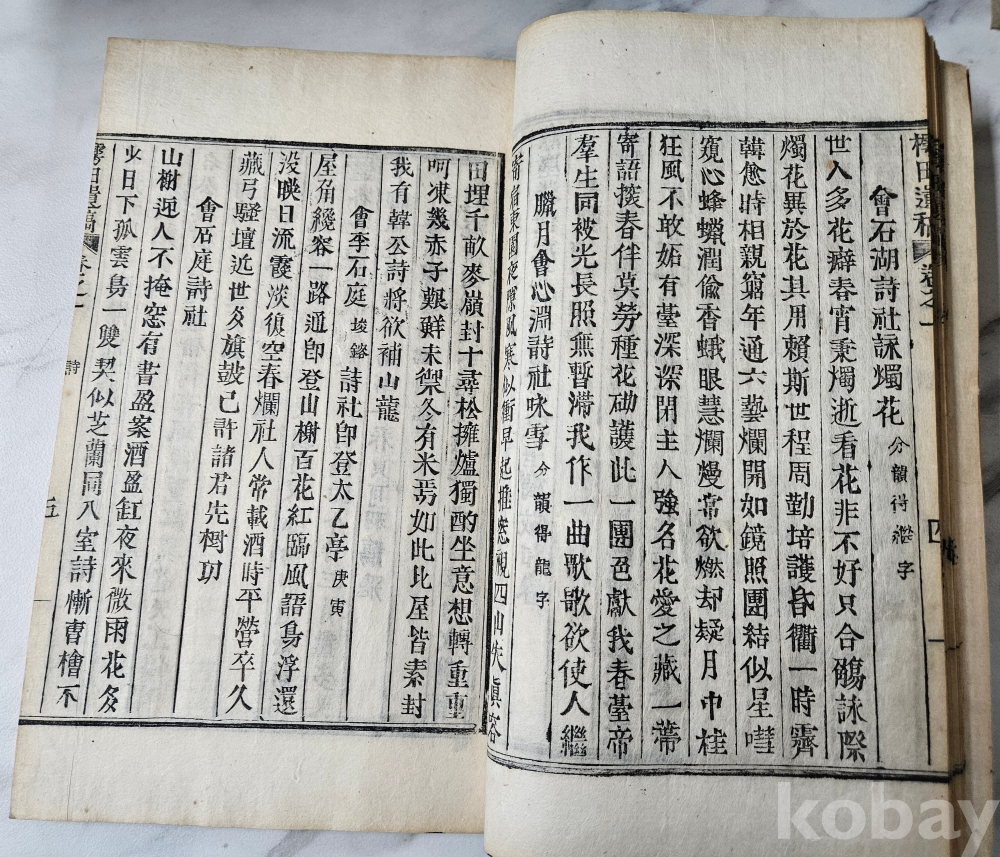 樗田遺稿 卷之一 四
會石湖詩社詠燭花 分韻得繼字
世人多花癖春宵秉燭逝看花非不好只合觴詠際
燭花異於花其用賴斯世程周勤培護昏衢一時霽
韓愈時相親窮年通六藝爛開如鏡照團結似星嘒
寬心蜂蠟潤偸香蛾眼慧爛熳常欲燃却疑月中桂
狂風不敢妬有臺深深閉主人強名花愛之藏一蔕
寄語援春伴莫勞種花砌護此一團色獻我春臺帝
羣生同被光長照無暫滯我作一曲歌歌欲使人繼
臘月會心淵詩社咏雪 分韻得龍字
寄宿東園夜隙風寒似衝早起推窓視四山失眞容
田埋千畝麥嶺封十尋松擁爐獨酌坐意想轉重重
呵凍幾赤子艱鮮未禦冬有米焉如此比屋皆素封
我有韓公詩將欲補山龍
會李石庭 埈鎔 詩社卽登太乙亭 庚寅
屋角纔容一路通卽登山榭百花紅臨風語鳥浮還
没映日流霞淡復空春爛社人常載酒時平營卒久
藏弓騷壇近世多旗鼓已許諸君先樹功
會石庭詩社
山榭迎人不掩窓有書盈案酒盈缸夜來微雨花多
少日下孤雲鳥一雙契似芝蘭同入室詩慚曹檜不
樗田遺稿 卷之一 詩 五
kobay